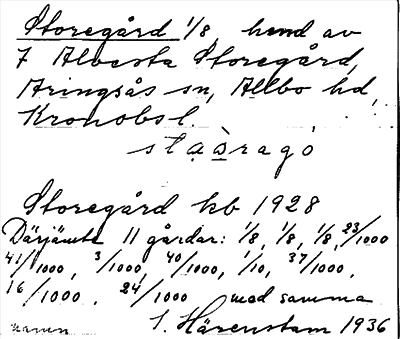 Storegård 1/8, hemd av
7 Alvesta Storegård,
Aringsås sn, Allbo hd,
Kronobs l.
Storegård kb 1928
Därjämte 11 gårdar: 1/8, 1/8, 1/8, 23/1000
41/1000, 3/1000, 40/1000, 1/10, 37/1000,
16/1000, 24/1000 med samma
namn J. Härenstam 1936